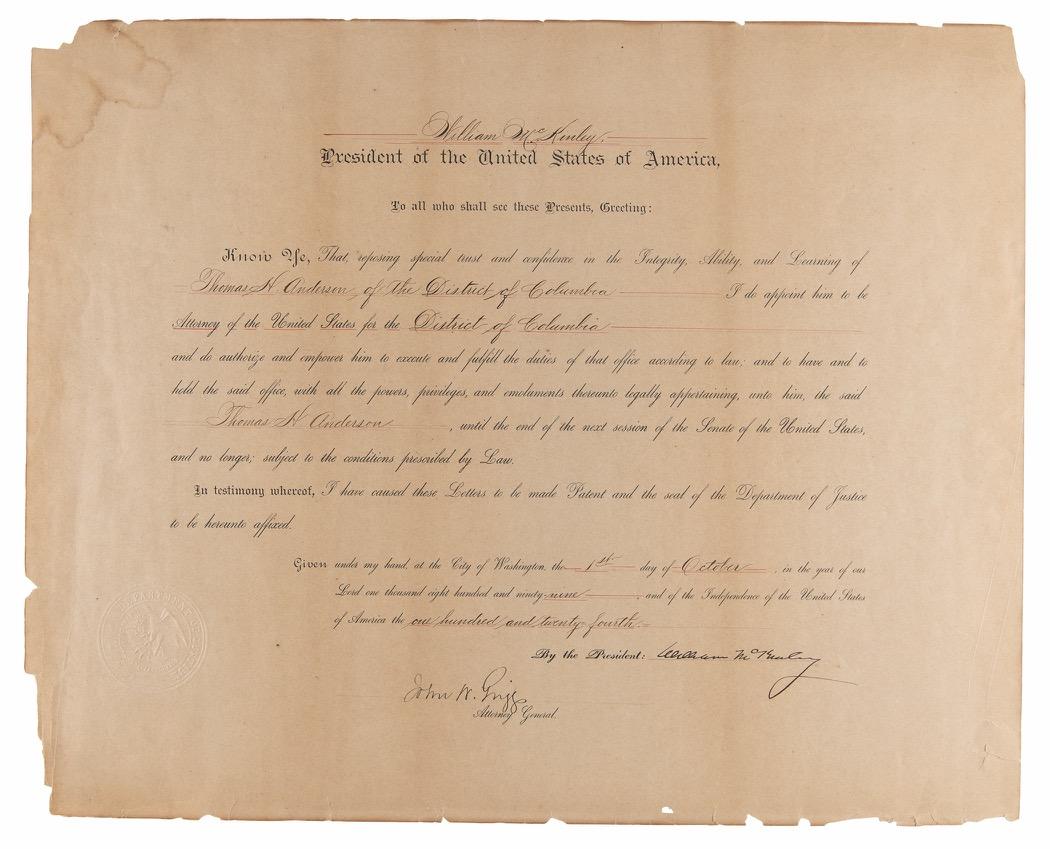 William McKinley.
President of the United States of America,
To all who shall see these Presents, Greeting:
Know Ye, That, reposing special trust and confidence in the Integrity, Ability, and Learning of
Thomas H Anderson of the District of Columbia I do appoint him to be
Attorney of the United States for the District of Columbia
and do authorize and empower him to execute and fulfill the duties of that office according to law; and to have and to
hold the said office, with all the powers, privileges, and emoluments thereunto legally appertaining, unto him, the said
Thomas H Anderson, until the end of the next session of the Senate of the United States,
and no longer; subject to the conditions prescribed by Law.
In testimony whereof, I have caused these Letters to be made Patent and the seal of the Department of Justice
to be hereunto affixed.
Given under my hand, at the City of Washington, the 1st day of October, in the year of our
Lord one thousand eight hundred and ninety-nine, and of the Independence of the United States
of America the one hundred and twenty-fourth.
By the President: William McKinley
John W. Griggs
Attorney General.